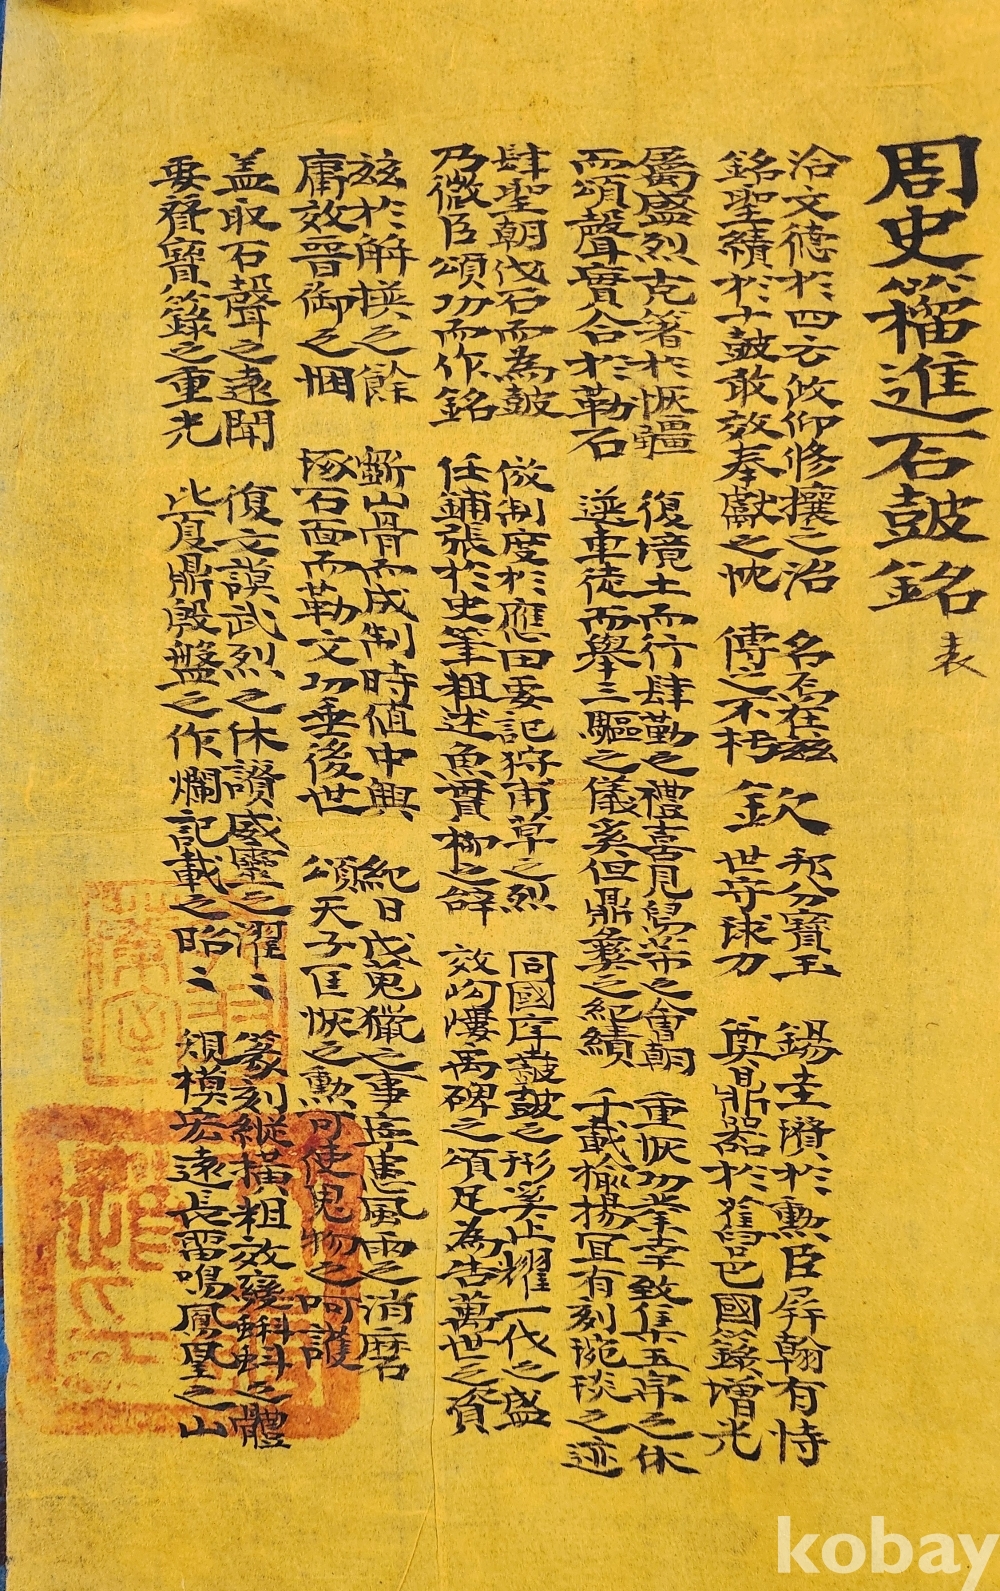 周史籀進石鼓銘 表
洽文德於四方攸仰修攘之治 名焉在玆 邦分寶玉 錫圭瓚於勳臣屛翰有恃
銘聖績於十鼓敢效奉獻之忱 傳之不朽 欽 世守球刀 奠鼎器於舊邑國籙增光
屬盛烈克箸於恢疆 復境土而行肆勤之禮喜見舄芾之會朝 重恢功業幸致集五宗之休
而頌聲實合於勒石 選車徒而擧三驅之儀奚但鼎彝之紀績 千載揄揚冝有刻琬琰之迹
肆聖朝伐石而為鼓 倣制度於應田要記狩甫草之烈 同國序鼖鼓之形奚止耀一代之盛
乃微臣頌功而作銘 任鋪張於史筆粗述魚貫柳之辭 效岣嶁禹碑之頌足為告萬世之資
玆於解楧之餘 斲山骨而成制時值中興 紀日戊蒐獵之事庶患風雨之消磨
庸效晉御之悃 琢石面而勒文功垂後世 頌天子匡恢之勳可使鬼物之呵護
盖取石聲之遠聞 復文謨武烈之休讚威靈之濯〻 篆刻縱橫粗效變蝌蚪之體
要賁寶籙之重光 比夏鼎殷盤之作爛記載之昭〻 規模宏遠長雷鳴鳳凰之山
kobay